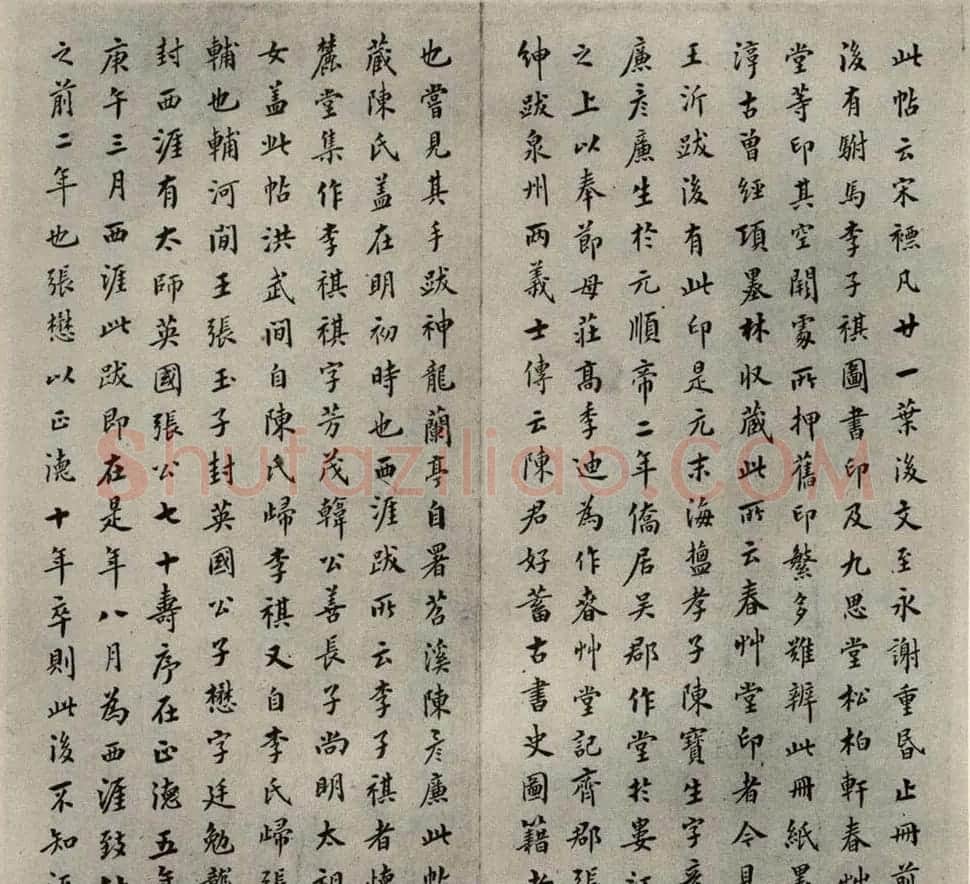 此帖云宋褾凡廿一葉後文至永謝重昬止冊前
後有駙馬李子祺圖書印及九思堂松柏軒春艸
堂等印其空闕處所押舊印繁多難辨此冊紙墨
淳古曾經項墨林収蔵此所云春艸堂印者今見
王沂跋後有此印是元末海鹽孝子陳寶生字彥
廉彥廉生於元順帝二年僑居吳郡作堂於婁江
之上以奉節母莊髙季迪為作春艸堂記齊郡張
紳跋泉州两義士傳云陳君好蓄古書史圖籍
也嘗見其手跋神龍蘭亭自署苕溪陳彥廉此帖
蔵陳氏盖在明初時也西涯跋所云李子祺者懐
麓堂集作李祺祺字芳茂韓公善長子尚明太祖
女盖此帖洪武間自陳氏歸李祺又自李氏歸張
輔也輔河間王張玉子封英國公子懋字廷勉
封西涯有太師英國張公七十壽序在正徳五年
庚午三月西涯此跋即在是年八月為西涯致
之前二年也張懋以正徳十年卒則此後不知
Shufaziliao.COM